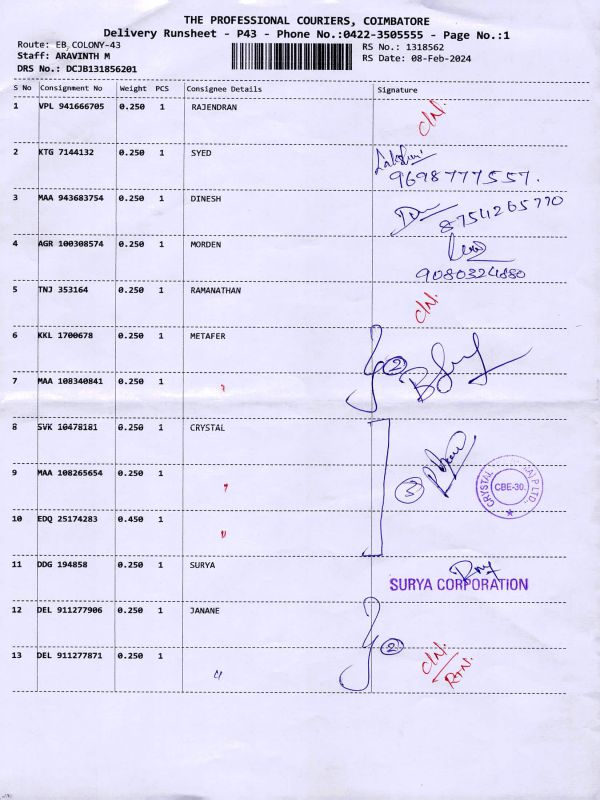 THE PROFESSIONAL COURIERS, COIMBATORE
Delivery Runsheet - P43 - Phone No.:0422-3505555 - Page No.:1
Route: EB, COLONY-43
Staff: ARAVINTH M
DRS No.: DCJB131856201
RS No.: 1318562
RS Date: 08-Feb-2024
S No Consignment No Weight PCS Consignee Details Signature
1 VPL 941666705 0.250 1 RAJENDRAN
C/N.
2 KTG 7144132 0.250 1 SYED
Lakshmi
9698777557.
3 MAA 943683754 0.250 1 DINESH
8754265770
4 AGR 100308574 0.250 1 MORDEN
9080324880
5 TNJ 353164 0.250 1 RAMANATHAN
C/N.
6 KKL 1700678 0.250 1 METAFER
2
7 MAA 108340841 0.250 1 "
8 SVK 10478181 0.250 1 CRYSTAL
3
CRYSTAL P LTD.,
CBE-30.
9 MAA 108265654 0.250 1 "
10 EDQ 25174283 0.450 1 "
11 DDG 194858 0.250 1 SURYA
SURYA CORPORATION
12 DEL 911277906 0.250 1 JANANE
2
13 DEL 911277871 0.250 1 "
C/N.
RTN.